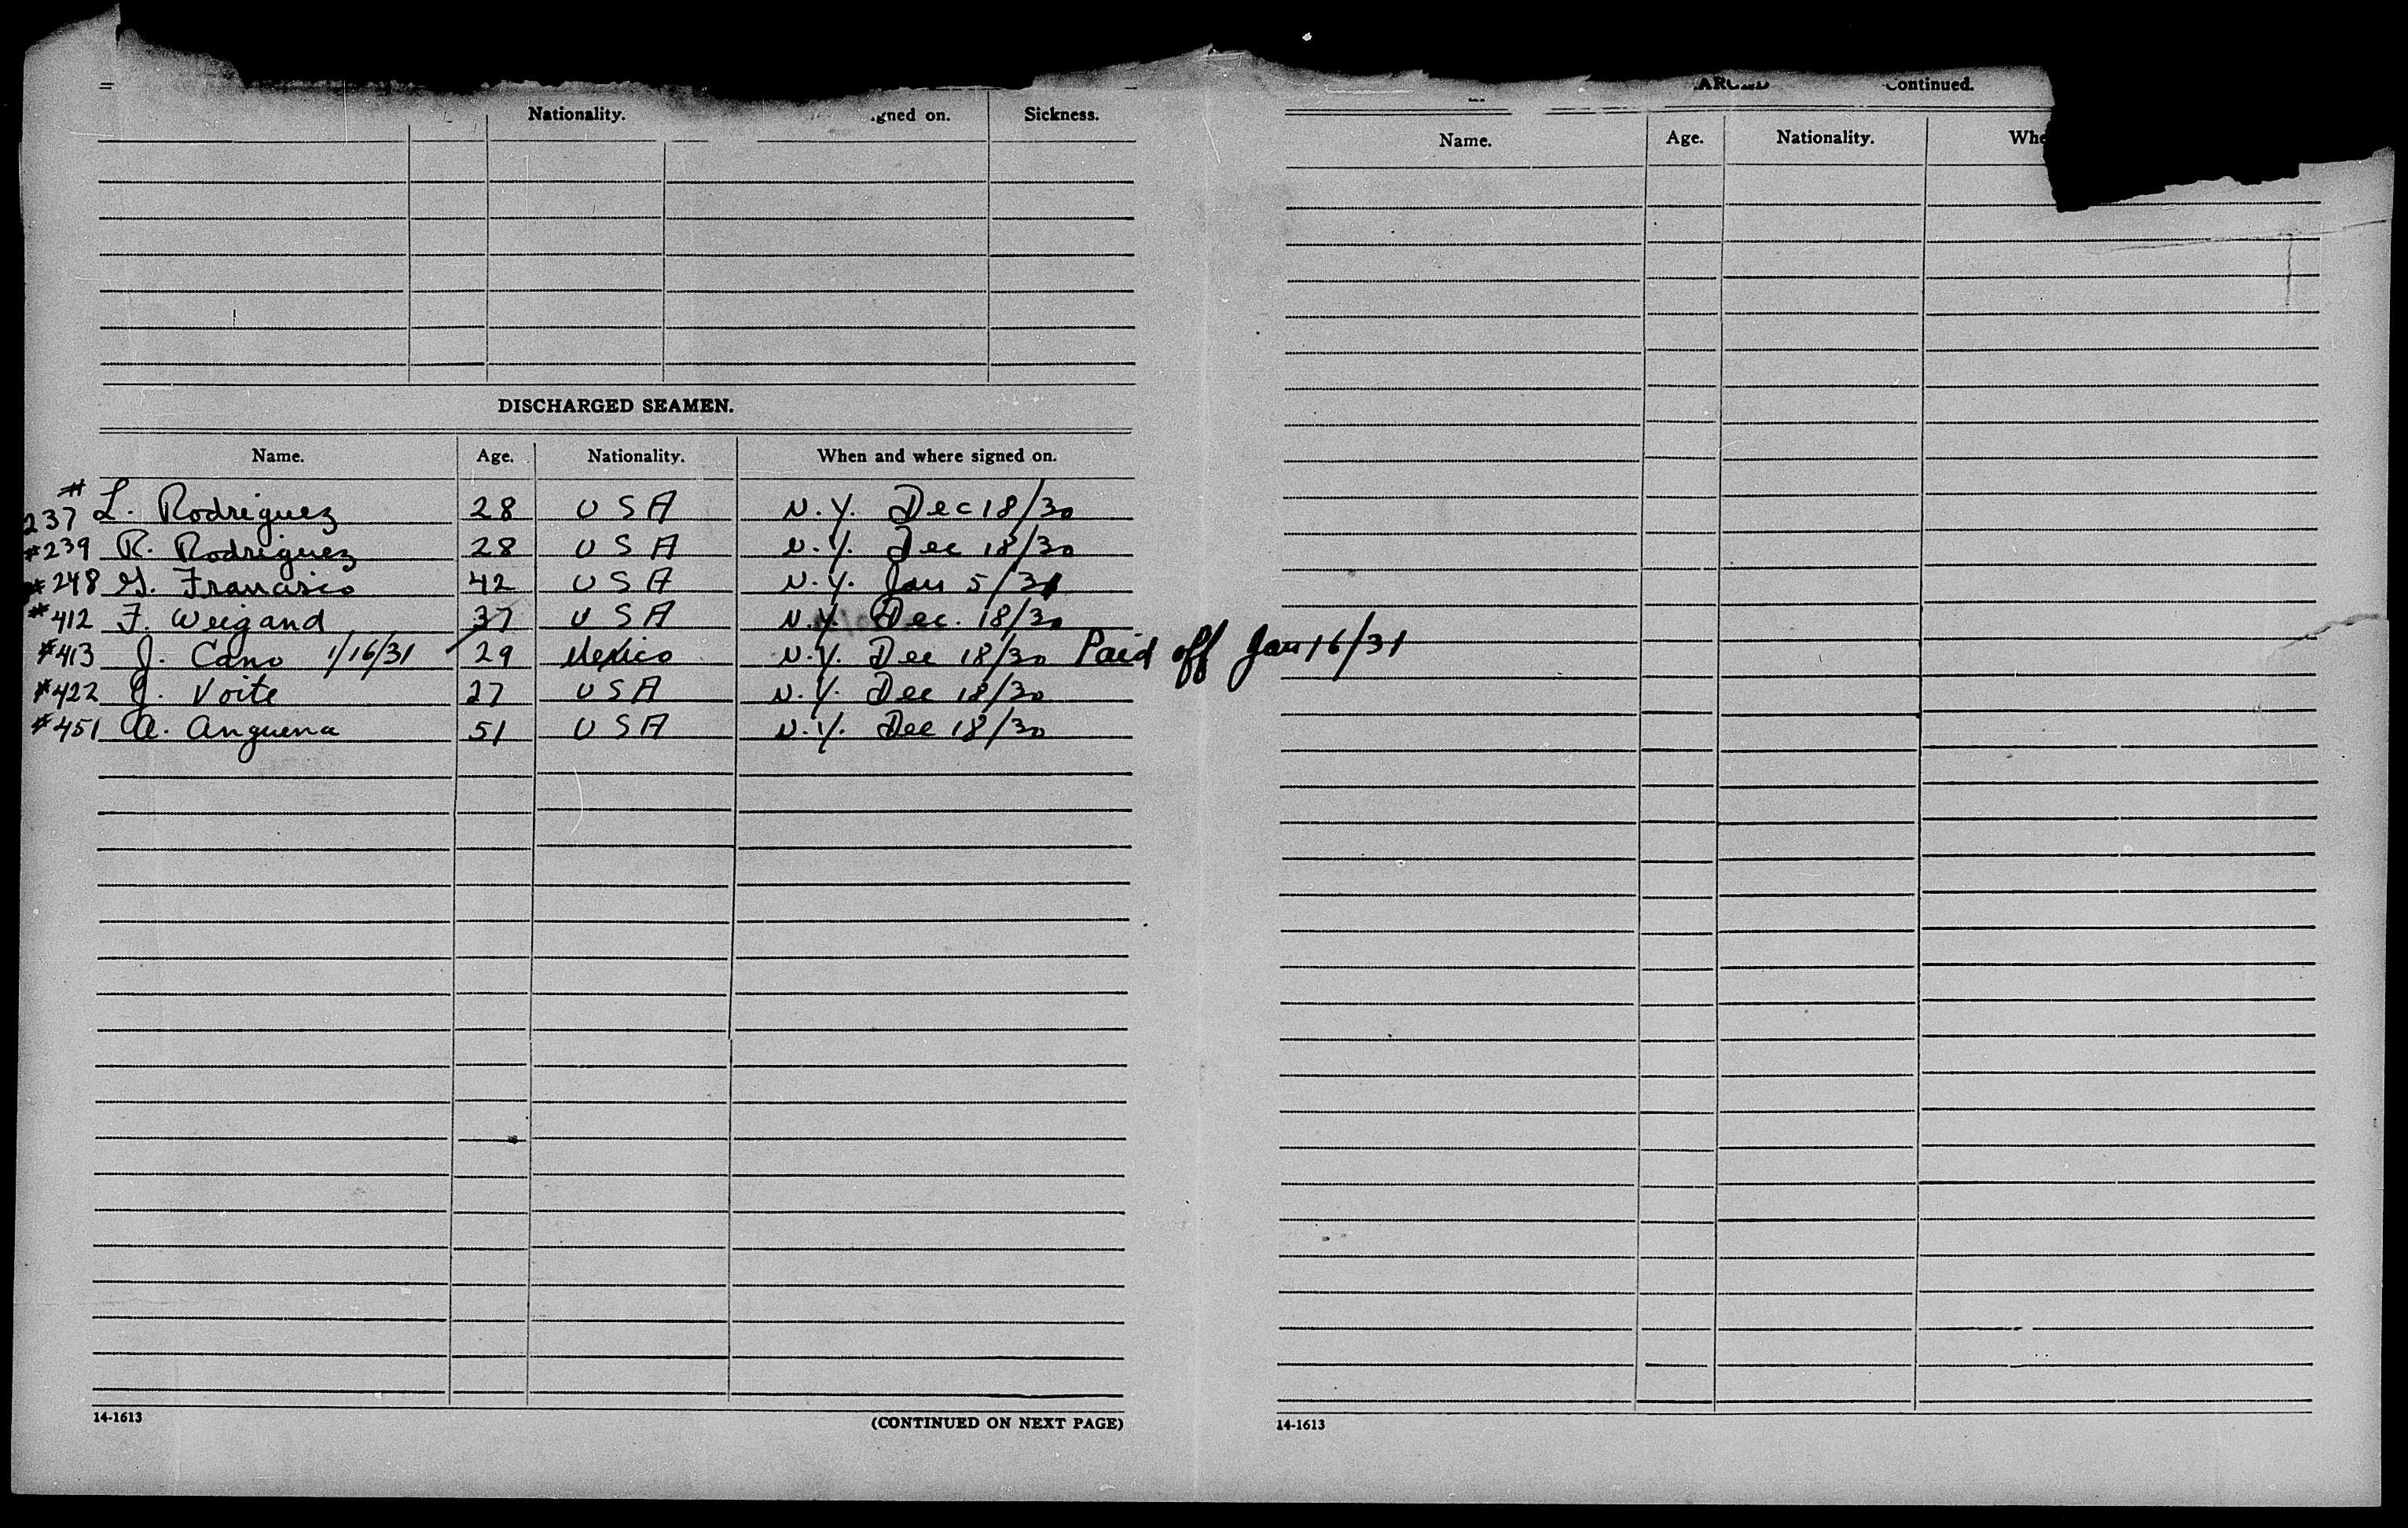 Nationality. gned on. Sickness.
DISCHARGED SEAMEN.
Name. Age. Nationality. When and where signed on.
#237 L. Rodriguez 28 USA N.Y. Dec 18/30
#239 R. Rodriguez 28 USA N.Y. Dec 18/30
#248 G. Francisco 42 USA N.Y. Jan 5/31
#412 F. Weigand 37 USA N.Y. Dec. 18/30
#413 J. Cano 1/16/31 29 Mexico N.Y. Dec 18/30 Paid off Jan 16/31
#422 J. Voite 27 USA N.Y. Dec 18/30
#451 A. Anguena 51 USA N.Y. Dec 18/30
14-1613 (CONTINUED ON NEXT PAGE)
ARGED Continued.
Name. Age. Nationality. Whe
14-1613